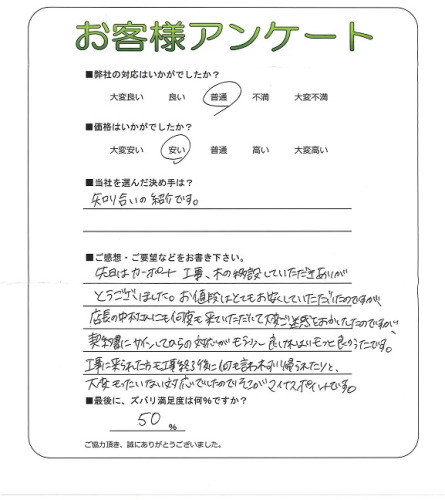 お客様アンケート
■弊社の対応はいかがでしたか？
大変良い 良い 普通 不満 大変不満
■価格はいかがでしたか？
大変安い 安い 普通 高い 大変高い
■当社を選んだ決め手は？
知り合いの紹介です。
■ご感想・ご要望などをお書き下さい。
先日はカーポート工事、木の移設していただきありが
とうございました。お値段はとてもお安くしていただいたのですが、
店長の中村さんにも何度も来ていただいて大変ご迷惑をおかけしたのですが、
契約書にサインしてからの対応がもう少し良ければもっと良かったです。
工事に来られた方も工事終了後に何も言わずに帰られたりと、
大変もったいない対応でしたのでそこがマイナスポイントです。
■最後に、ズバリ満足度は何%ですか？
50 %
ご協力頂き、誠にありがとうございました。